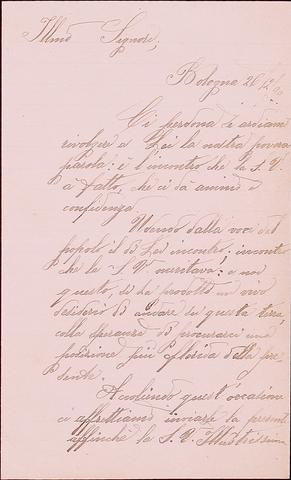 Illmo Signore,
Bologna 26/12/90
Ci perdona se ardiam
rivolgere a Lei la nostra povera
parola: è l'incontro che la S. V.
a fatto, che ci dà animo e
confidenza.
Udendo dalla voce del
popolo il di Lei incontro; incontro
che la S. V. meritava: a noi
questo, si ha prodotto un vivo
desiderio di andare su questa terra,
colla speranza di procurarci una
posizione più florida della pre
sente.
Accogliendo quest'occasione
ci affrettiamo inviare la presente
affinchè la S. V. Illustrissima